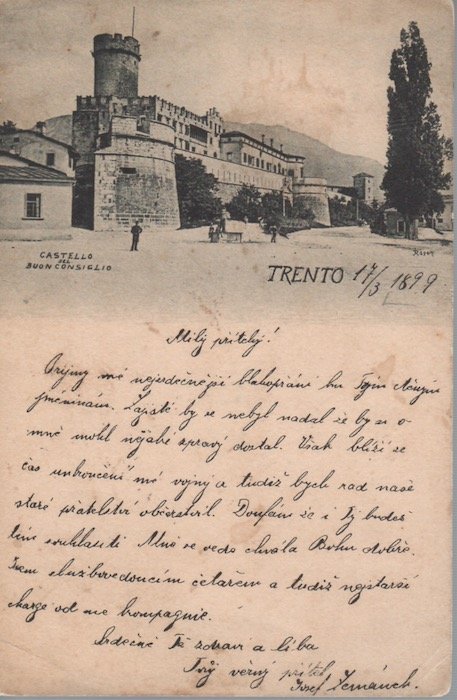 CASTELLO
DEL
BUON CONSIGLIO
TRENTO 17/3 1899
Milý příteli!
Přijmy mé nejsrdečnější blahopřání ku Tvým
jmeninám. Zajisté by se nebyl nadál že by se o
mně mohl nějaké zpravý dostal. Však blíží se
čas unkončení mé vojny a tudiž bych rad naše
staré přatelství občerstvil. Doufám že i Ty budeš
tím souhlasiti. Mně se vede chvála Bohu dobře.
Jsem službovedoucím četařem a tudiž nejstarší
charže od me kompagnie.
Srdečně Tě zdraví a líba
Tvůj věrný přítel
Josef Zemánek.